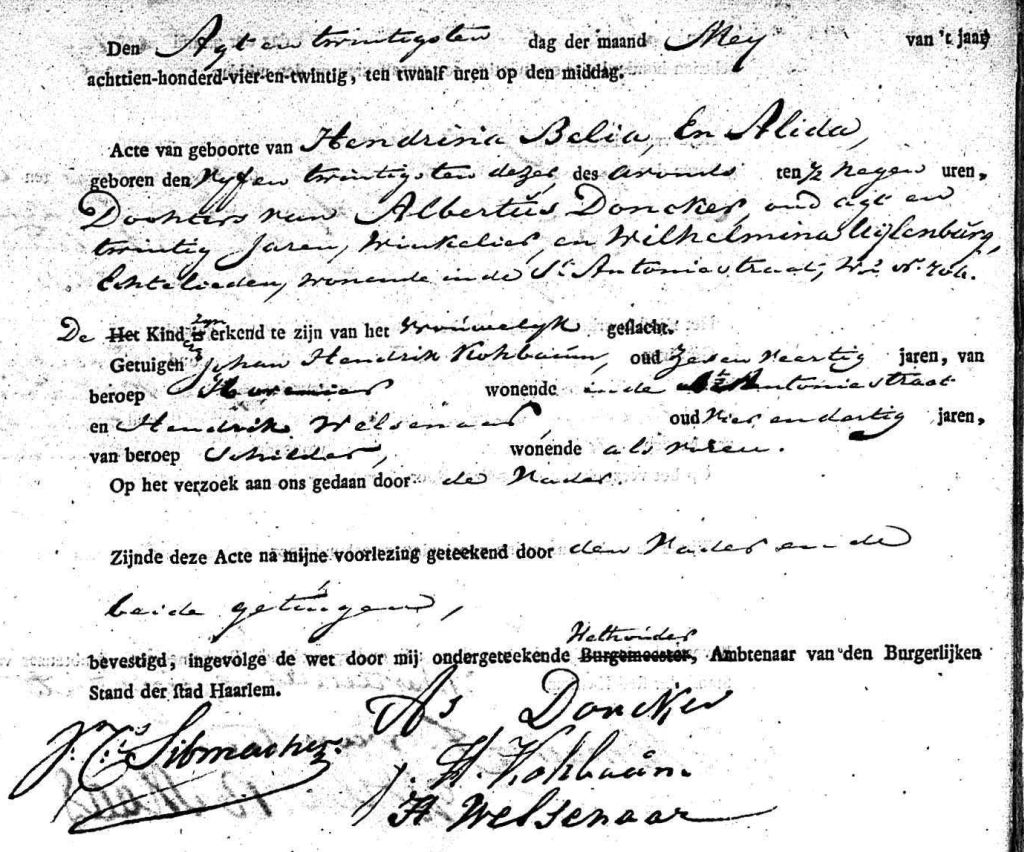 Den Agt en twintigsten dag der maand Mey van 't jaar
achttien-honderd-vier-en-twintig, ten twaalf uren op den middag.
Acte van geboorte van Hendrina Belia, En Alida,
geboren den Vyf en twintigsten dezer des avonds ten ½ negen uren,
Dochters van Albertus Doncker, oud agt en
twintig Jaren, Winkelier, en Wilhelmina Uijlenburg,
Echtelieden, wonende in de St Antoniestraat, Wk N. 706.
De Het Kind is zyn erkend te zijn van het Vrouwelyk geslacht.
Getuigen zyn Johan Hendrik Kohbaun, oud Zes en Veertig jaren, van
beroep wonende in de St Antoniestraat
en Hendrik Welsenaar, oud Vier en dertig jaren,
van beroep Schilder, wonende als voren.
Op het verzoek aan ons gedaan door de Vader.
Zijnde deze Acte na mijne voorlezing geteekend door den Vader en de
beide getuigen,
Wethouder
bevestigd, ingevolge de wet door mij ondergeteekende Burgemeester, Ambtenaar van den Burgerlijken
Stand der stad Haarlem.
As Doncker
Sibmacher.
J. H. Kohbaun.
H Welsenaar